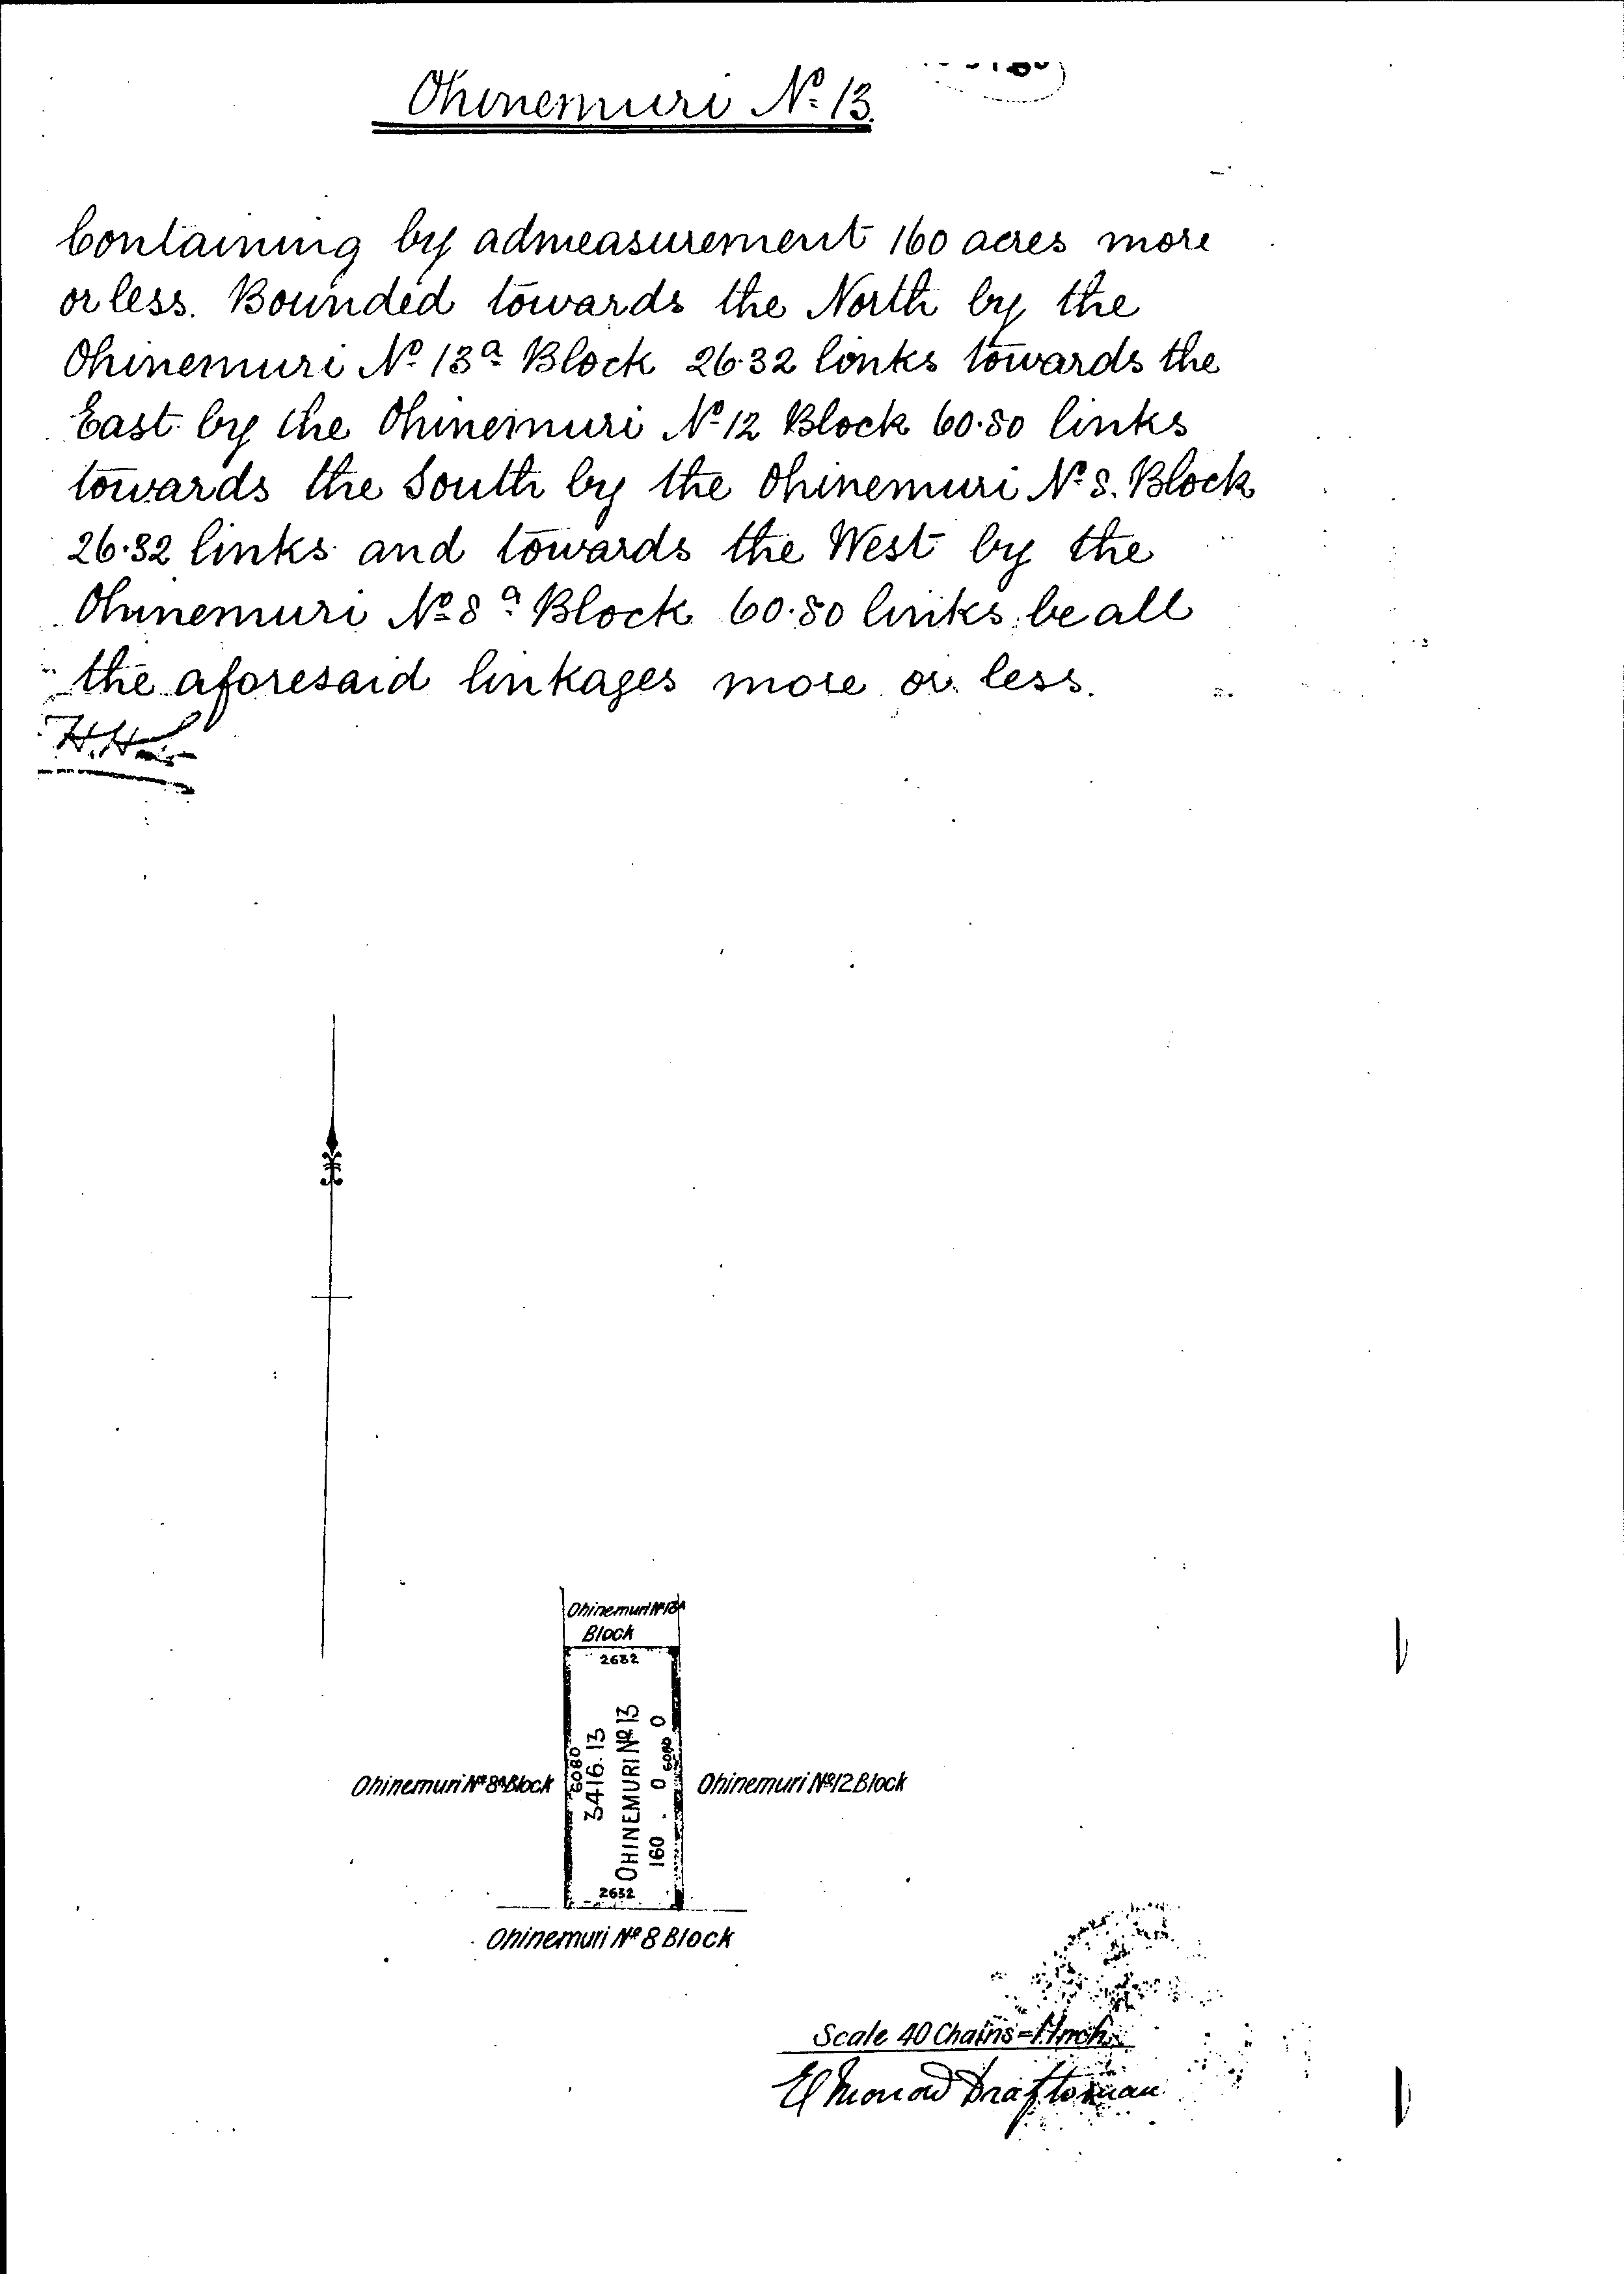 Ohinemuri Nº 13.
Containing by admeasurement 160 acres more
or less. Bounded towards the North by the
Ohinemuri Nº 13ª Block 26·32 links towards the
East by the Ohinemuri Nº 12 Block 60·80 links
towards the South by the Ohinemuri Nº 8. Block
26·32 links and towards the West by the
Ohinemuri Nº 8ª Block 60·80 links be all
the aforesaid linkages more or less.
Ohinemuri Nº 13A
Block
2632
6080
3416.13
OHINEMURI Nº 13
160 . 0 0
6080
Ohinemuri Nº 8A Block
Ohinemuri Nº 12 Block
2632
Ohinemuri Nº 8 Block
Scale 40 Chains = 1 Inch
Draftsman